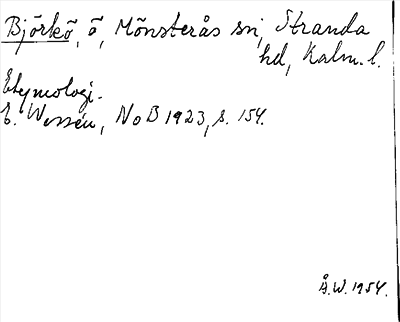 Björkö, ö, Mönsterås sn, Stranda
hd, Kalm. l.
Etymologi.
E. Wessén, NoB 1923, s. 154.
Å.W. 1954.